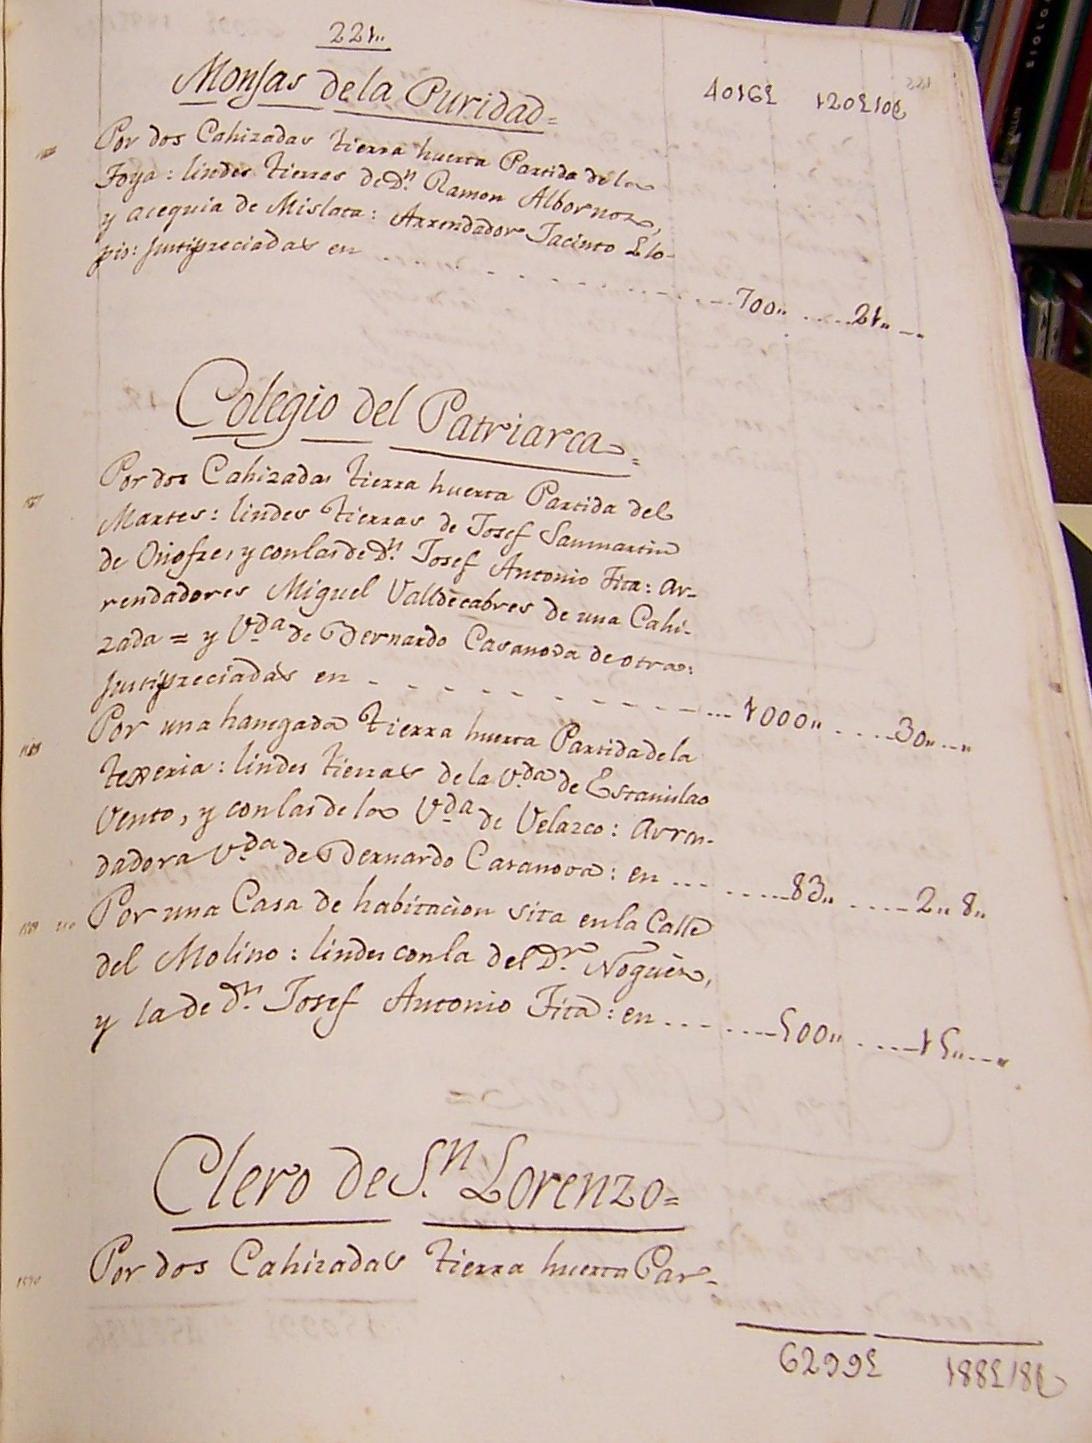 221„
Monjas de la Puridad=
Por dos Cahizadas tierra huerta Partida de la
Foya: lindes tierras de Dn. Ramon Albornoz,
y acequia de Mislata: Arrendador Jacinto Llo-
pis: justipreciadas en ............ 700„ ..... 21„ --
Colegio del Patriarca=
Por dos Cahizadas tierra huerta Partida del
Martes: lindes tierras de Josef Sanmartin
de Onofre, y con las de Dn. Josef Antonio Fita: Ar-
rendadores Miguel Valldecabres de una Cahi-
zada = y Vda de Bernardo Casanova de otra:
justipreciadas en ............ 1000„ ..... 30„ --„
Por una hanegada tierra huerta Partida de la
texeria: lindes tierras de la Vda de Estanislao
Vento, y con las de la Vda de Velazco: Arren-
dadora Vda de Bernardo Casanova: en ........ 83„ ..... 2„ 8„
Por una Casa de habitacion sita en la Calle
del Molino: lindes con la del Dr. Noguèra,
y la de Dn. Josef Antonio Fita: en ........ 500„ ..... 15„ --„
Clero de Sn. Lorenzo=
Por dos Cahizadas tierra huerta Par-